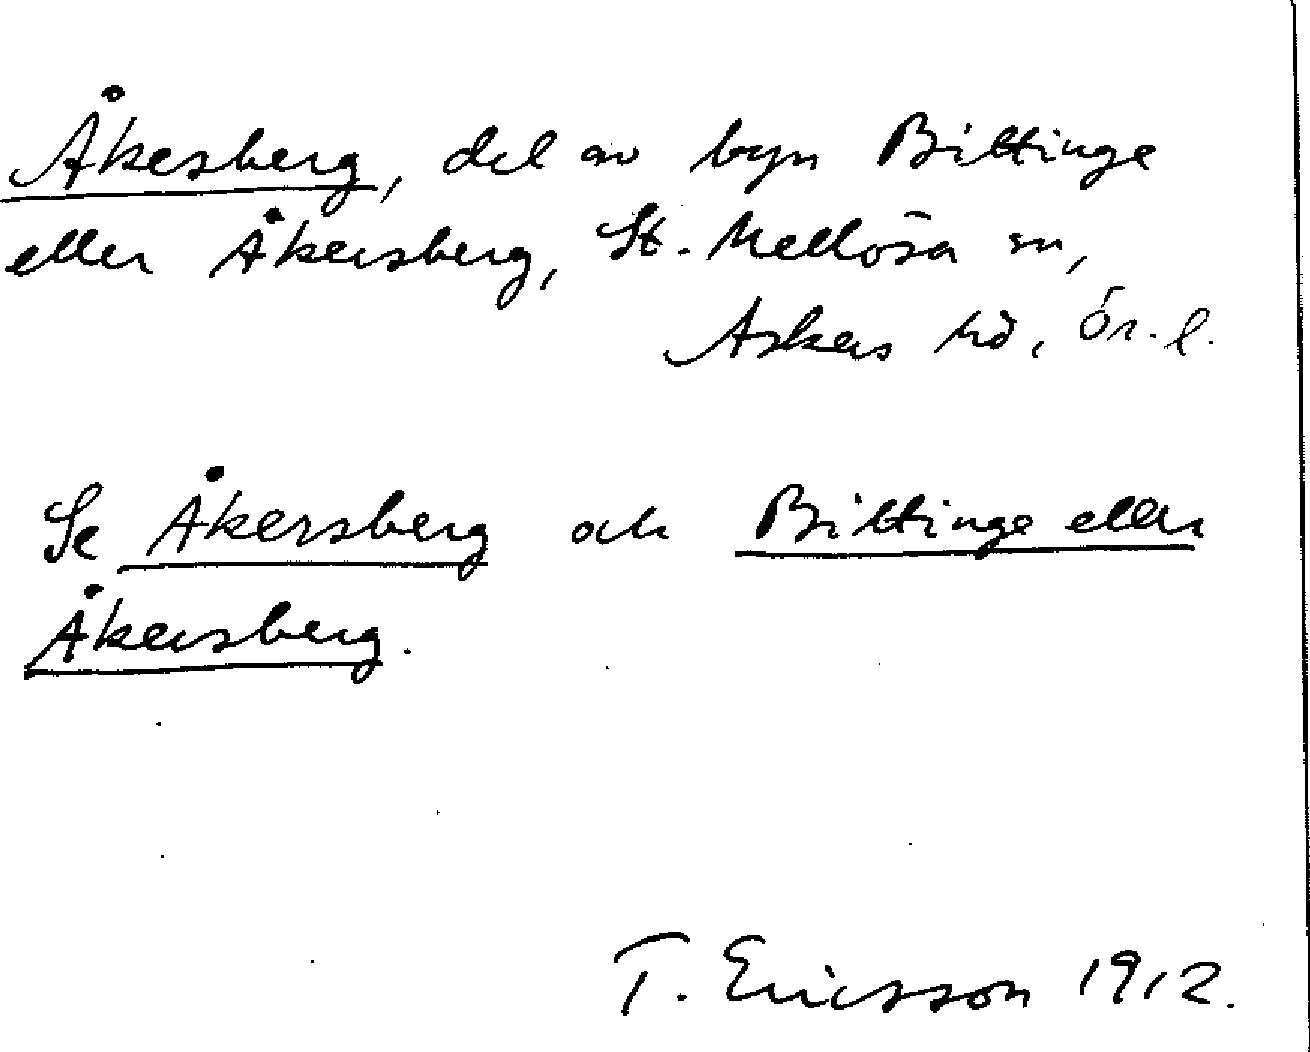 Åkesberg, del av byn Bittinge
eller Åkersberg, St. Mellösa sn,
Askers hd, Ör. l.
Se Åkersberg och Bittinge eller
Åkersberg.
T. Ericsson 1912.